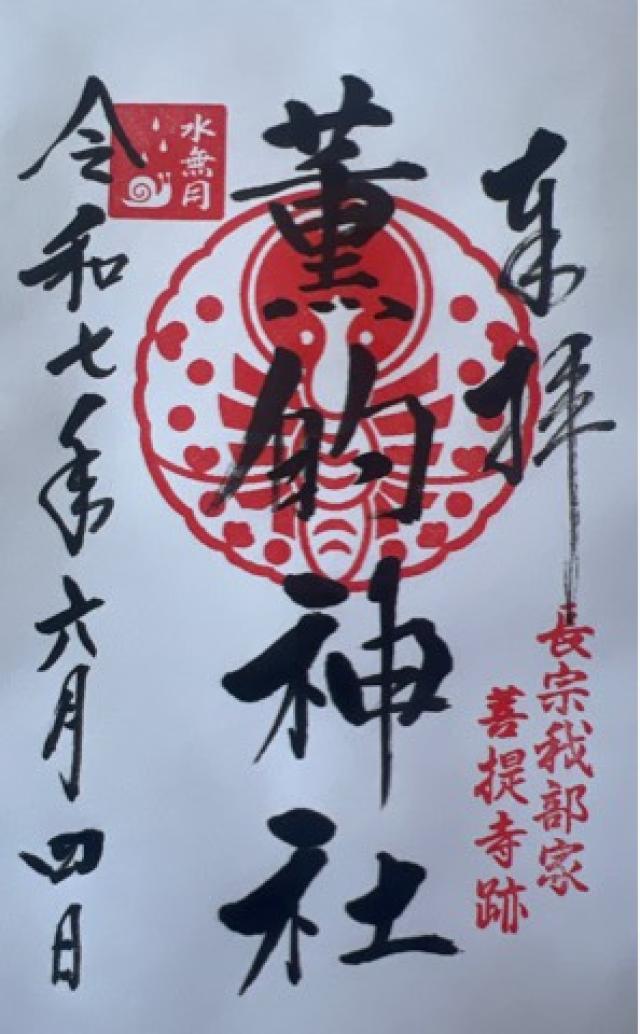 奉拝
長宗我部家
菩提寺跡
薫的神社
水無月
令和七年六月四日